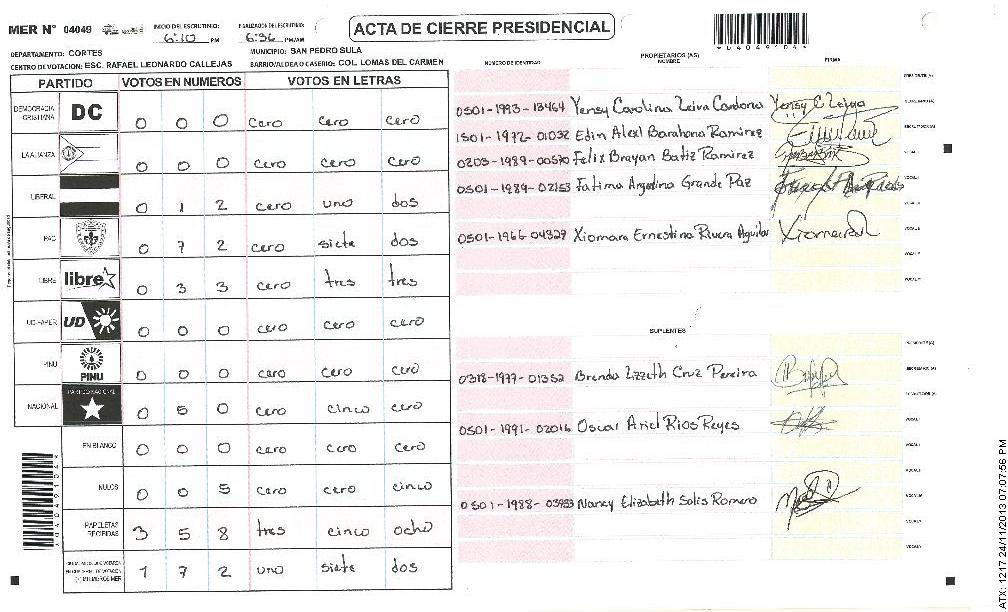 MER N° 04049
INICIO DEL ESCRUTINIO: 6:10 PM
FINALIZACION DEL ESCRUTINIO: 6:36 PM/AM
ACTA DE CIERRE PRESIDENCIAL
*04049104*
DEPARTAMENTO: CORTES
MUNICIPIO: SAN PEDRO SULA
CENTRO DE VOTACION: ESC. RAFAEL LEONARDO CALLEJAS
BARRIO/ALDEA O CASERIO: COL. LOMAS DEL CARMEN
PARTIDO VOTOS EN NUMEROS VOTOS EN LETRAS
DEMOCRACIA CRISTIANA DC 0 0 0 cero cero cero
LA ALIANZA 0 0 0 cero cero cero
LIBERAL 0 1 2 cero uno dos
PAC 0 7 2 cero siete dos
LIBRE libre 0 3 3 cero tres tres
UD-FAPER UD 0 0 0 cero cero cero
PINU PINU 0 0 0 cero cero cero
NACIONAL PARTIDO NACIONAL 0 5 0 cero cinco cero
EN BLANCO 0 0 0 cero cero cero
NULOS 0 0 5 cero cero cinco
PAPELETAS RECIBIDAS 3 5 8 tres cinco ocho
1 7 2 uno siete dos
PROPIETARIOS (AS)
NUMERO DE IDENTIDAD NOMBRE FIRMA
0501-1993-13464 Yensy Carolina Leiva Cardona
1501-1972-01032 Edin Alexl Barahona Ramirez
0203-1989-00570 Felix Brayan Batiz Ramirez
0501-1989-02153 Fatima Argelina Grande Paz
0501-1966-04329 Xiomara Ernestina Rivera Aguilar
SUPLENTES
0318-1977-01352 Brenda Lizzeth Cruz Pereira
0501-1991-02016 Oscar Ariel Rios Reyes
0501-1988-03953 Nancy Elizabeth Solis Romero
ATX: 1217 24/11/2013 07:07:56 PM